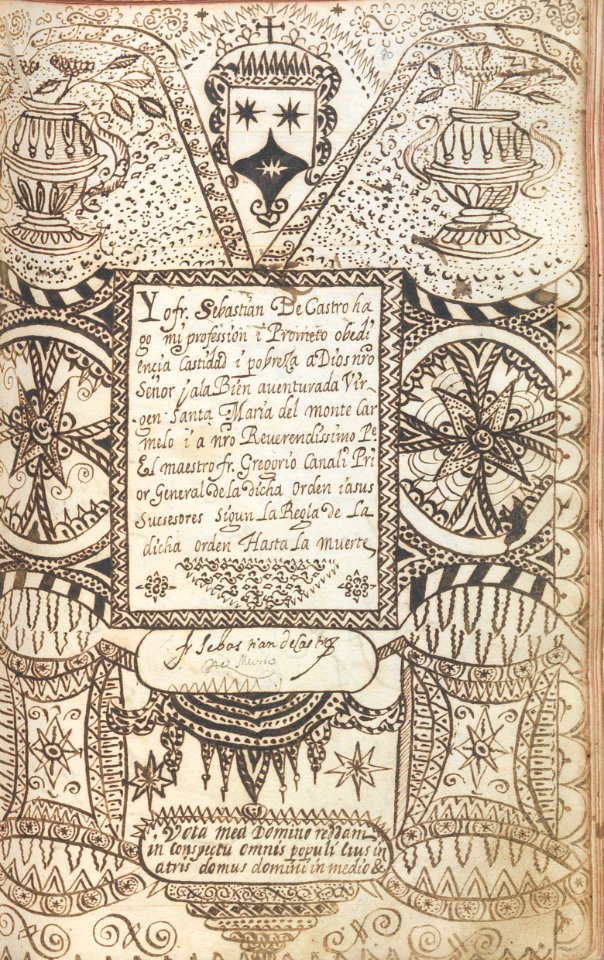 80
Yo fr. Sebastian De Castro ha
go mi profession i Prometo obedi
encia Castidad i pobreza a Dios nro
Señor i ala Bien aventurada Vir
gen Santa Maria del monte Car
melo i a nro Reuerendissimo Pe
El maestro fr. Gregorio Canali Pri
or General de la dicha Orden i asus
Sucsesores Sigun La Regla de La
dicha orden Hasta La muerte
fr sebastian de castro
Vota mea Domino reddam
in conspectu omnis populi Eius in
atris domus domini in medio &